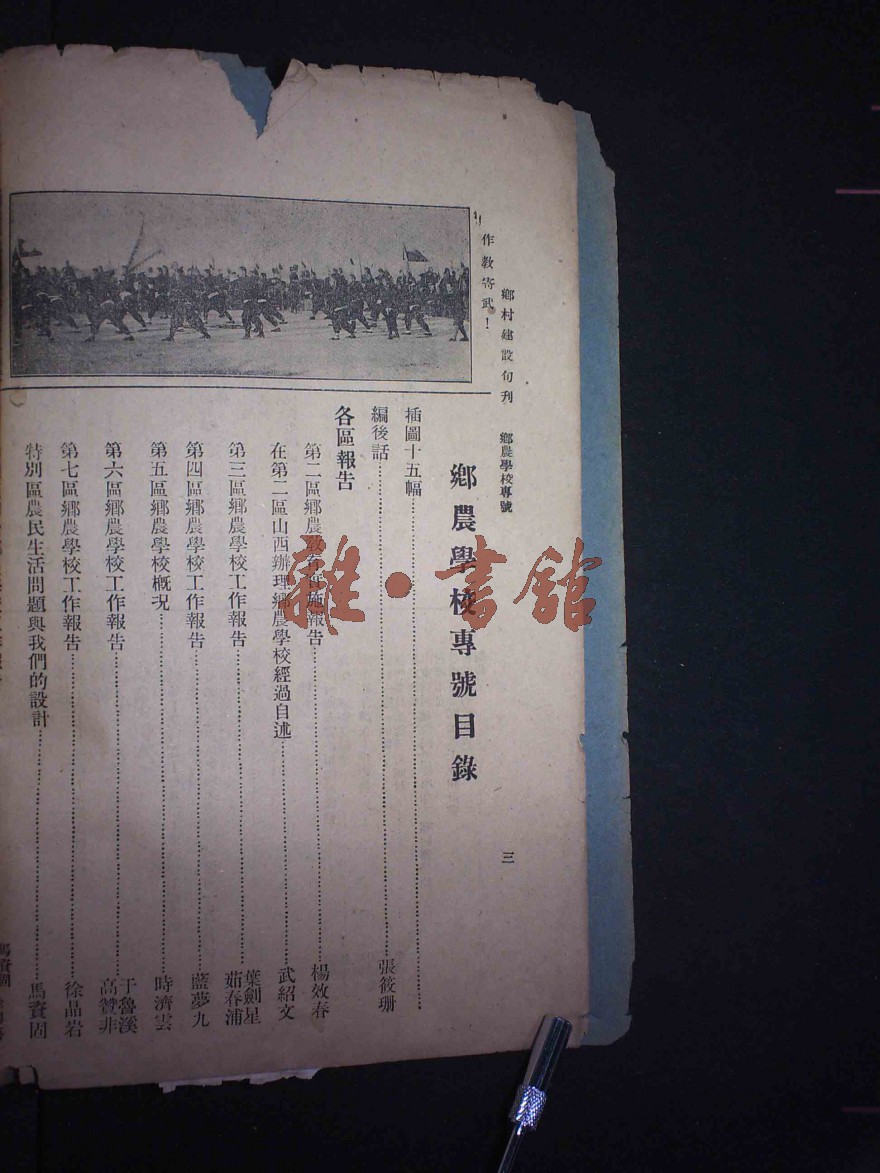 鄉村建設旬刊　鄉農學校專號　三
作教寄武！
鄉農學校專號目錄
插圖十五幅
編後話　張筱珊
各區報告
第二區鄉農教育實施報告　楊效春
在第二區山西辦理鄉農學校經過自述　武紹文
第三區鄉農學校工作報告　葉劍星　茹春浦
第四區鄉農學校工作報告　藍夢九
第五區鄉農學校概況　時濟雲
第六區鄉農學校工作報告　于魯溪　高贊非
第七區鄉農學校工作報告　徐晶岩
特別區農民生活問題與我們的設計　馬資固
雜·書館